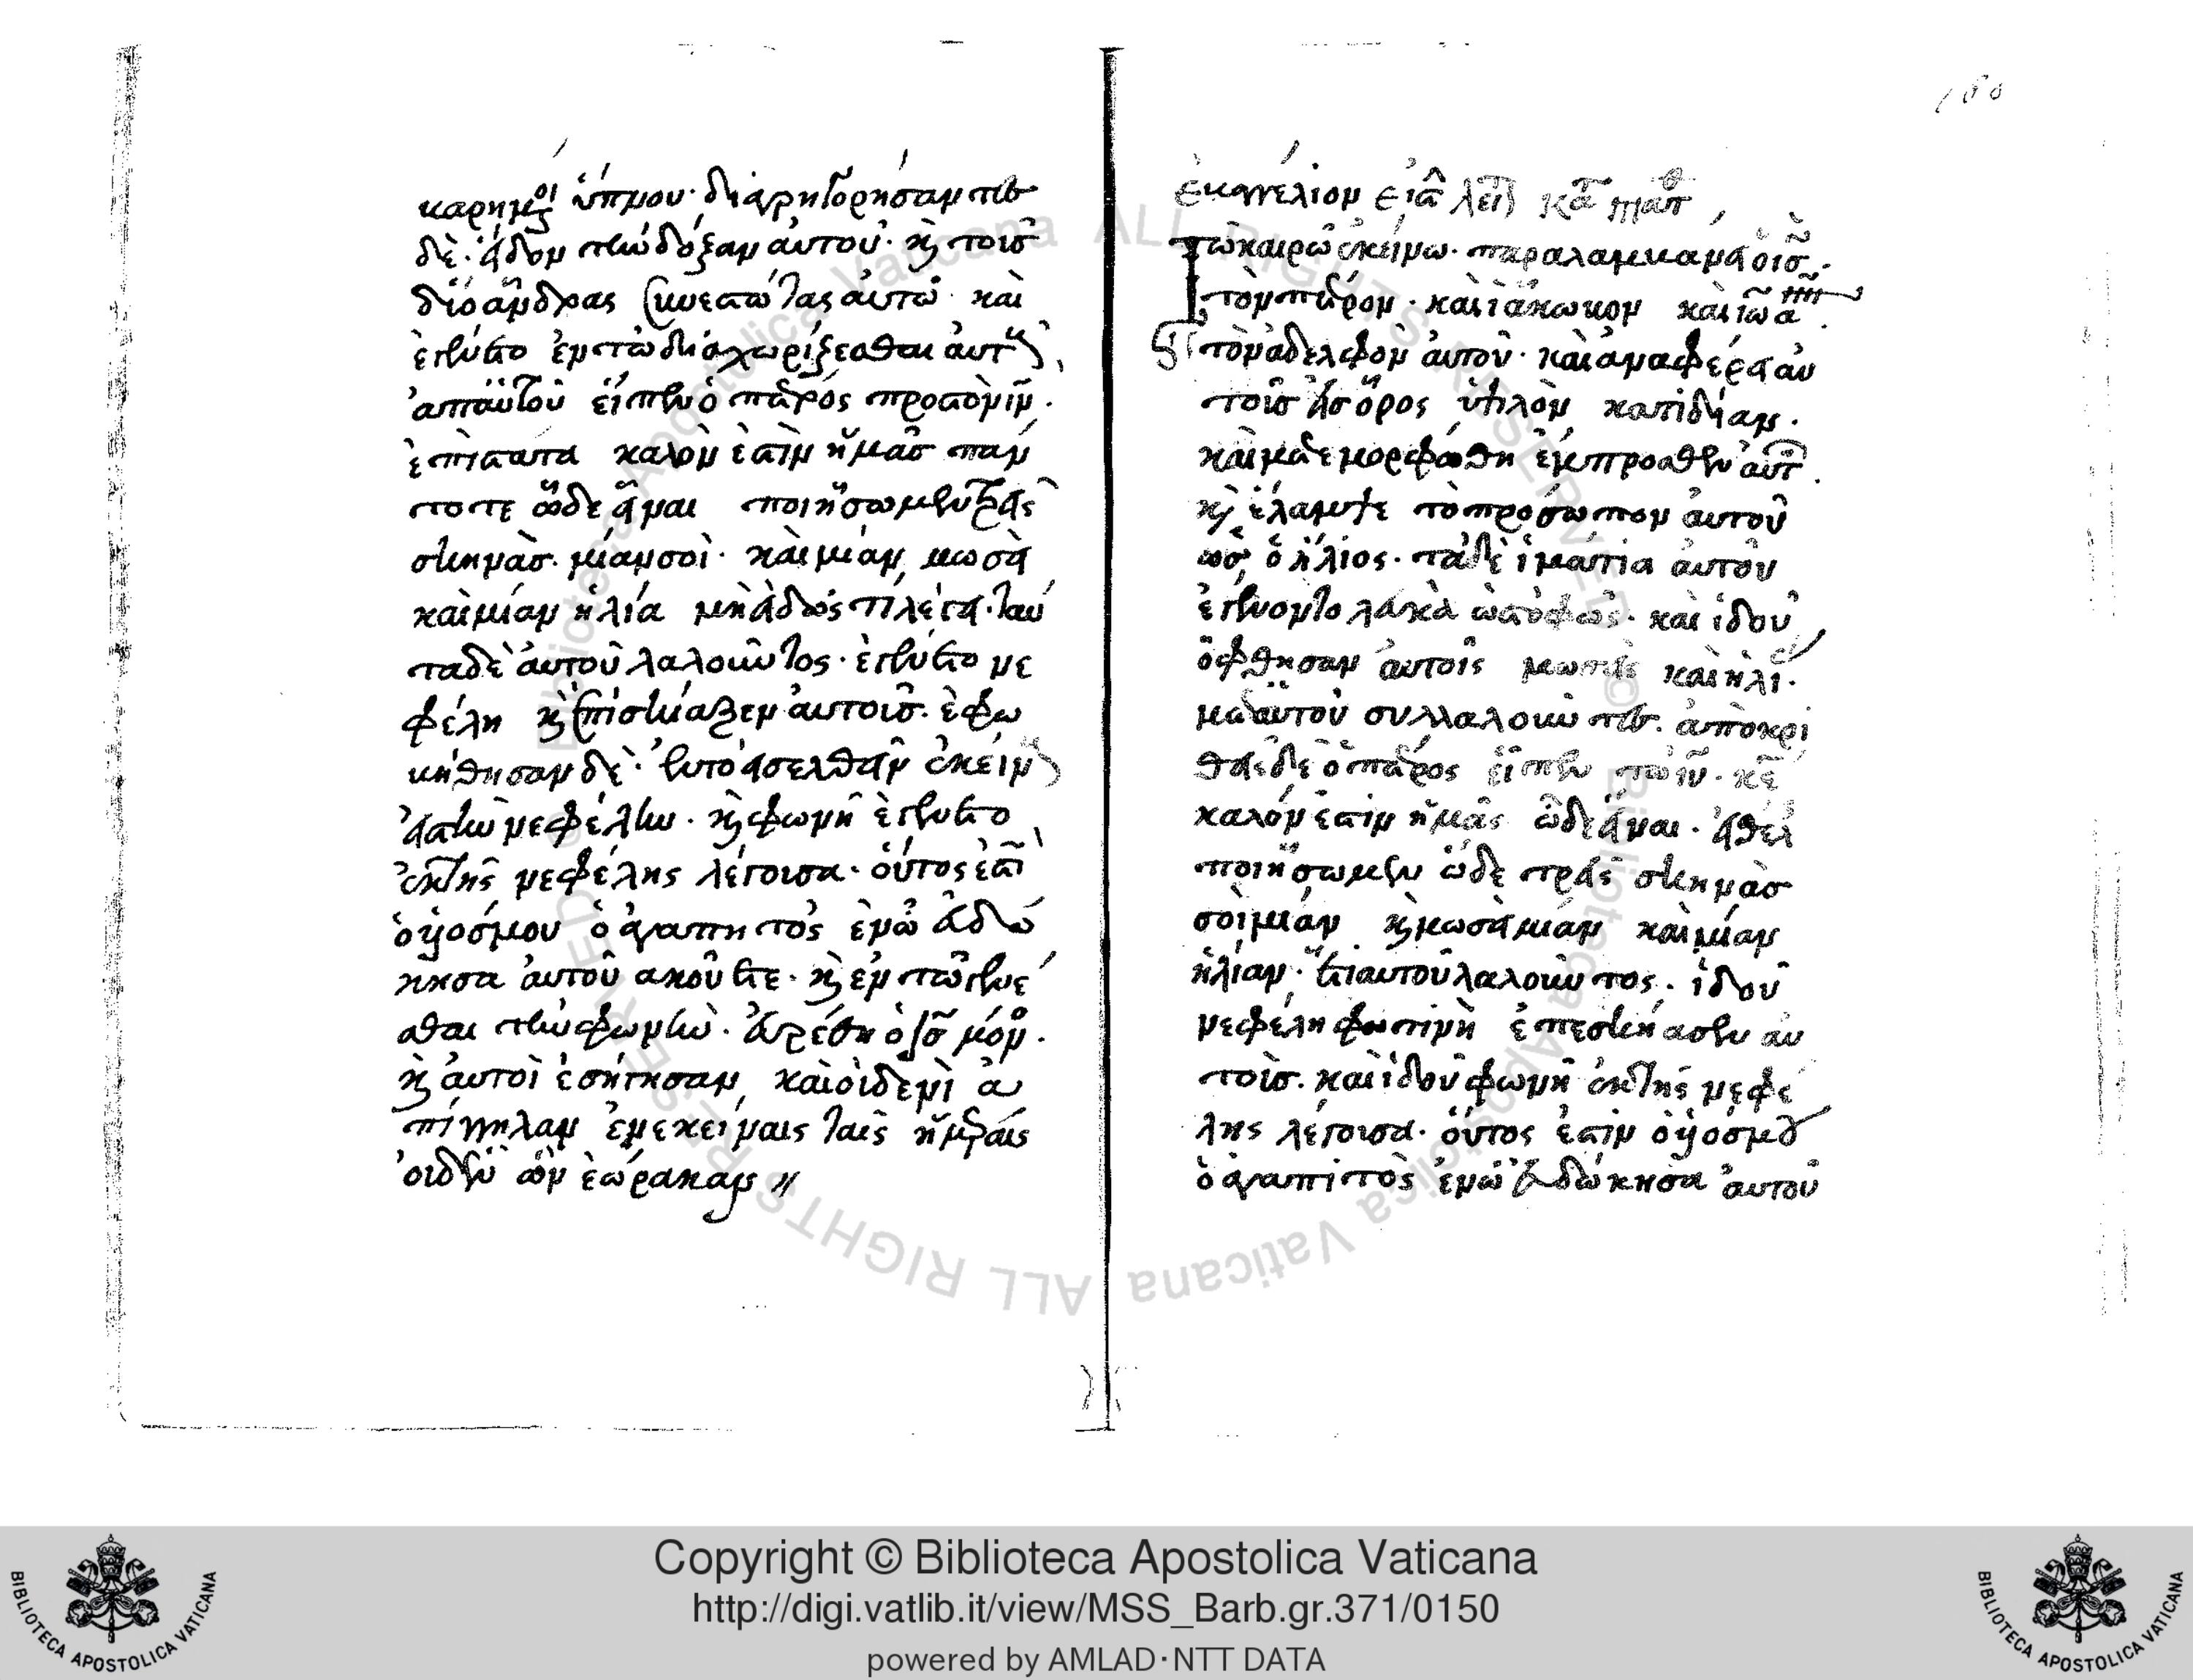 καρημένοι ὕπνου· διαρηγορήσαντες
δὲ· εἶδον τὴν δόξαν αὐτοῦ· κ̀ τοῖς
δίο ἄνδρας συνεστώτας αὐτῶ· καὶ
ἐγένετο ἐν τῶ διαχωρίζεσθαι αὐτοὺς
ἀπ' αὐτοῦ εἶπεν ὁ πέτρος πρὸς τὸν ἰν̄.
ἐπιστάτα καλὸν ἐστὶν ἡμᾶς πάν
τοτε ὧδε εἶναι ποιήσωμεν τρεῖς
σκηνὰς· μίαν σοὶ· καὶ μίαν μωσῆ
καὶ μίαν ἡλία μὴ εἰδὼς τι λέγει· ταύ
τα δὲ αὐτοῦ λαλοῦντος· ἐγένετο νε
φέλη κ̀ ἐπισκίαζεν αὐτοῖς· ἐφω
βήθησαν δὲ· ἐν τὸ εἰσελθεῖν ἐκείνους
εἰς τὴν νεφέλην· κ̀ φωνὴ ἐγένετο
ἐκ τῆς νεφέλης λέγουσα· οὗτος ἐστὶ
ὁ υἱός μου ὁ ἀγαπητός ἐν ὧ εὐδώ
κησα αὐτοῦ ἀκούετε· κ̀ ἐν τῶ γενέ
σθαι τὴν φωνὴν· εὑρέθη ὁ ις̄ μόνος.
κ̀ αὐτοὶ ἐσήγησαν καὶ οὐδενὶ ἀ
πίγγηλαν ἐν ἐκείναις ταῖς ἡμέραις
οὐδὲν ὧν ἑώρακαν //
ἐυαγγέλιον εἰς τὴν λειτ κατὰ ματθ
Τῶ καιρῶ ἐκείνω· παραλαμβάνει ὁ ις̄
τὸν πέτρον· καὶ ἰάκωβον καὶ ἰωάννην
τὸν ἀδελφὸν αὐτοῦ· καὶ ἀναφέρει αὐ
τοῖς εἰς ὄρος ὑψιλὸν κατιδίαν.
καὶ μετεμορφώθη ἔμπροσθεν αὐτῶν.
κ̀ ἔλαμψε τὸ πρόσωπον αὐτοῦ
ὡς ὁ ἥλιος· τὰ δὲ ἱμάτια αὐτοῦ
ἐγένοντο λευκὰ ὡς τὸ φῶς· καὶ ἰδοὺ
ὄφθησαν αὐτοῖς μωσῆς καὶ ἡλί·
μετ' αὐτοῦ συλλαλοῦντες· ἀποκρι
θεὶς δὲ ὁ πέτρος εἶπεν τῶ ιῡ· κε̄
καλόν ἐστιν ἡμᾶς ὧδε εἶναι· εἰ θέλεις
ποιήσωμεν ὧδε τρεῖς σκηνὰς
σοὶ μίαν κ̀ μωσῆ μίαν καὶ μίαν
ἡλίαν· ἔτι αὐτοῦ λαλοῦντος· ἰδοῦ
νεφέλη φωτινὴ ἐπεσκήασεν αὐ
τοῖς· καὶ ἰδοῦ φωνὴ ἐκ τῆς νεφέ
λης λέγουσα· οὗτος ἐστιν ὁ υἱός μου
ὁ ἀγαπιτὸς ἐν ὧ εὐδώκησα αὐτοῦ
Copyright © Biblioteca Apostolica Vaticana
http://digi.vatlib.it/view/MSS_Barb.gr.371/0150
powered by AMLAD·NTT DATA
BIBLIOTECA APOSTOLICA VATICANA
BIBLIOTECA APOSTOLICA VATICANA